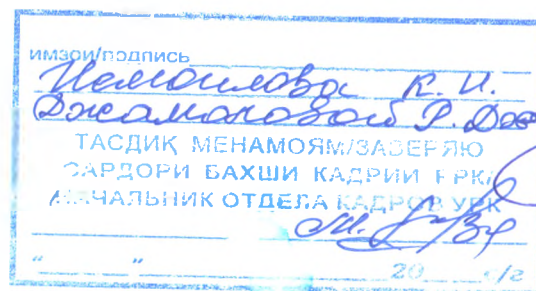 имзои/подпись
К. И.
Джамаловой Р. Дов
ТАСДИҚ МЕНАМОЯМ/ЗАВЕРЯЮ
САРДОРИ БАХШИ КАДРИИ РРК/
НАЧАЛЬНИК ОТДЕЛА КАДРОВ УРК
“ ” 20 с/г